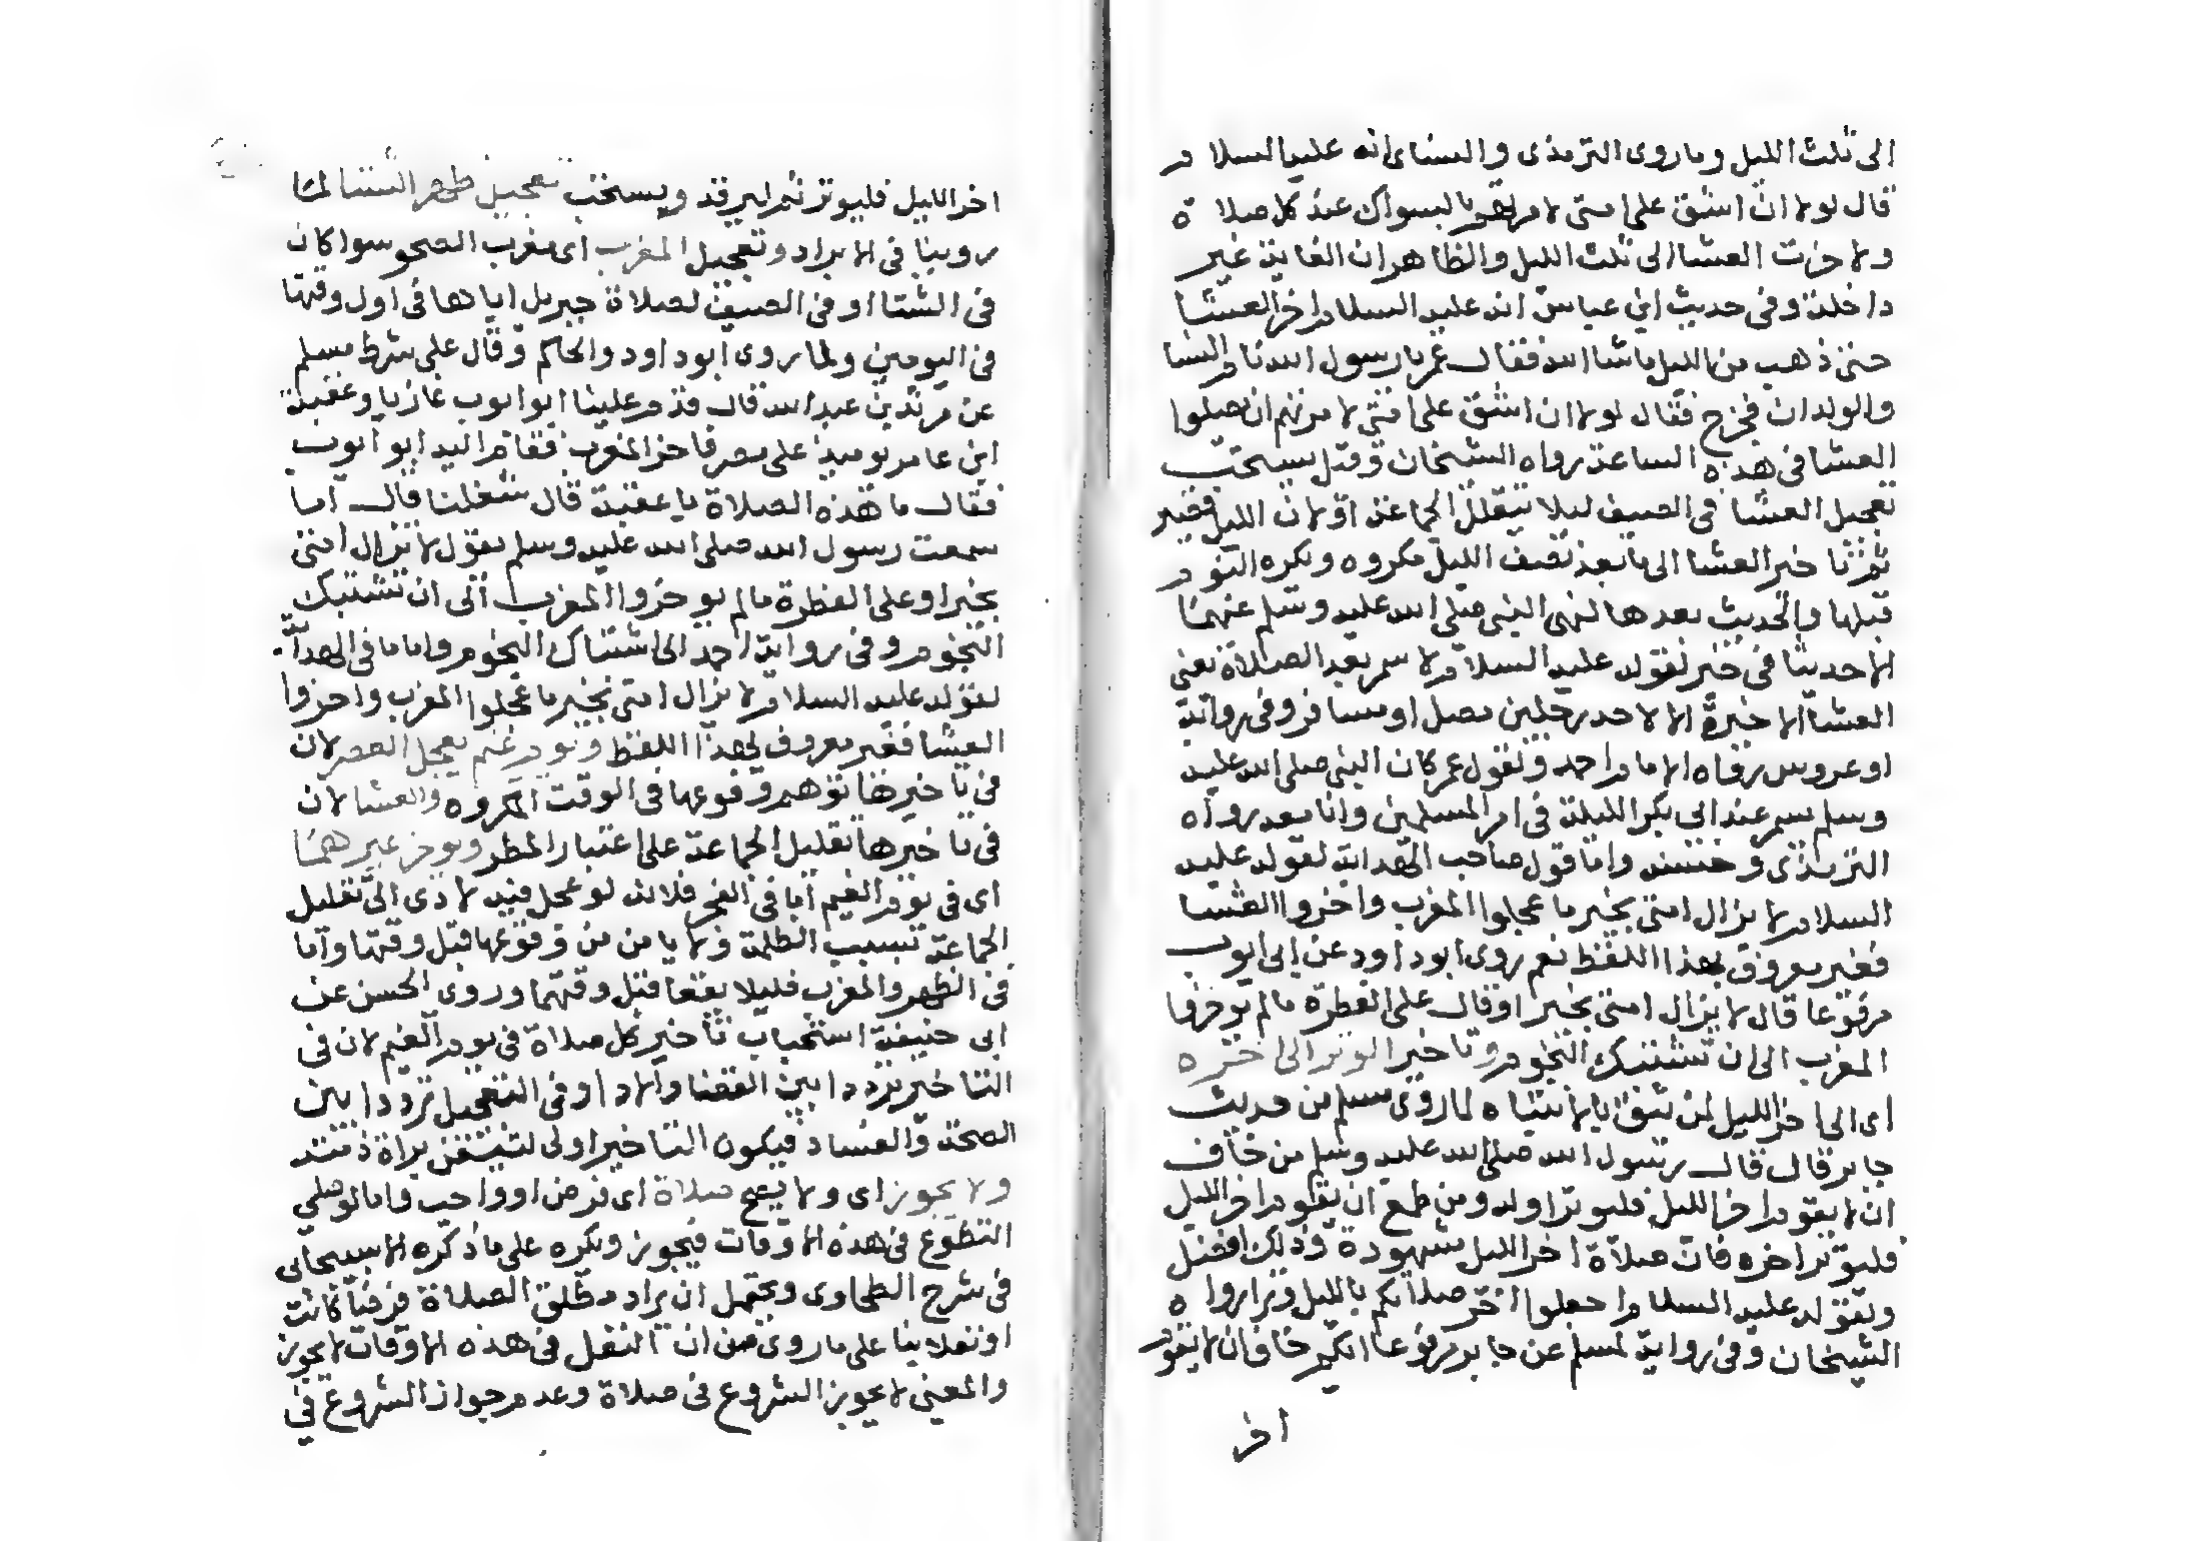 الى ثلث الليل وما روى الترمذى والنساى انه عليه السلام
قال لولا ان اشق على امتى لامرتهم بالسواك عند كل صلاة
ولاخرت العشا الى ثلث الليل والظاهر ان الغاية غير
داخلة وفى حديث ابن عباس انه عليه السلام اخر العشا
حتى ذهب من الليل ماشا الله فقال عمر يا رسول الله نام النسا
والولدان فخرج فقال لولا ان اشق على امتى لامرتهم ان يصلوا
العشا فى هذه الساعة رواه الشيخان وقيل يستحب
تعجيل العشا فى الصيف ليلا يتقلل الجماعة اولان الليل قصير
ثم تاخير العشا الى ما بعد نصف الليل مكروه ويكره النوم
قبلها والحديث بعدها لنهى النبى صلى الله عليه وسلم عنهما
الا حديثا فى خير لقوله عليه السلام لا سمر بعد الصلاة يعنى
العشا الاخيرة الا لاحد رجلين مصل او مسافر وفى رواية
او عروس رواه الامام احمد ولقول عمر كان النبى صلى الله عليه
وسلم يسمر عند ابى بكر الليلة فى امر المسلمين وانا معه رواه
الترمذى وحسنه واما قول صاحب الهداية لقوله عليه
السلام لا يزال امتى بخير ما عجلوا المغرب واخروا العشا
فغير معروف بهذا اللفظ نعم روى ابو داود عن ابى ايوب
مرفوعا قال لا يزال امتى بخير او قال على الفطرة مالم يوخروا
المغرب الى ان تشتبك النجوم وتاخير الوتر الى اخره
اى الى اخر الليل لمن يثق بالانتباه لما روى مسلم من حديث
جابر قال قال رسول الله صلى الله عليه وسلم من خاف
ان لا يقوم اخر الليل فليوتر اوله ومن طمع ان يقوم اخر الليل
فليوتر اخره فان صلاة اخر الليل مشهودة وذلك افضل
ولقوله عليه السلام اجعلوا اخر صلاتكم بالليل وترا رواه
الشيخان وفى رواية لمسلم عن جابر مرفوعا ايكم خاف ان لا يقوم
اخر
اخر الليل فليوتر ثم ليرقد ويستحب تعجيل ظهر الشتا لما
روينا فى الابراد وتعجيل المغرب اى مغرب الصحو سوا كان
فى الشتا او فى الصيف لصلاة جبريل اياها فى اول وقتها
فى اليومين ولما روى ابو داود والحاكم وقال على شرط مسلم
عن مرثد بن عبد الله قال قدم علينا ابو ايوب غازيا وعقبة
ابن عامر يوميذ على مصر فاخر المغرب فقام اليه ابو ايوب
فقال ما هذه الصلاة يا عقبة قال شغلنا قال اما
سمعت رسول الله صلى الله عليه وسلم يقول لا يزال امتى
بخير او على الفطرة مالم يوخروا المغرب الى ان تشتبك
النجوم وفى رواية احمد الى اشتباك النجوم واما ما فى الهداية
لقوله عليه السلام لا يزال امتى بخير ما عجلوا المغرب واخروا
العشا فغير معروف بهذا اللفظ ويوم غيم يعجل العصر لان
فى تاخيرها توهم وقوعها فى الوقت المكروه والعشا لان
فى تاخيرها تقليل الجماعة على اعتبار المطر ويوخر غيرهما
اى فى يوم الغيم اما فى الفجر فلانه لو عجل فيه لادى الى تقليل
الجماعة بسبب الظلمة ولا يامن من وقوعها قبل وقتها واما
فى الظهر والمغرب فليلا يقعا قبل وقتهما وروى الحسن عن
ابى حنيفة استحباب تاخير كل صلاة فى يوم الغيم لان فى
التاخير ترددا بين القضا والادا وفى التعجيل ترددا بين
الصحة والفساد فيكون التاخير اولى لتيقن براة ذمته
ولا يجوز اى ولا يصح صلاة اى فرض او واجب واما لو صلى
التطوع فى هذه الاوقات فيجوز ويكره على ما ذكره الاسبيجابى
فى شرح الطحاوى ويحتمل ان يراد مطلق الصلاة فرضا كانت
او نفلا بنا على ما روى من ان النفل فى هذه الاوقات لا يجوز
والمعنى لا يجوز الشروع فى صلاة وعدم جواز الشروع فى